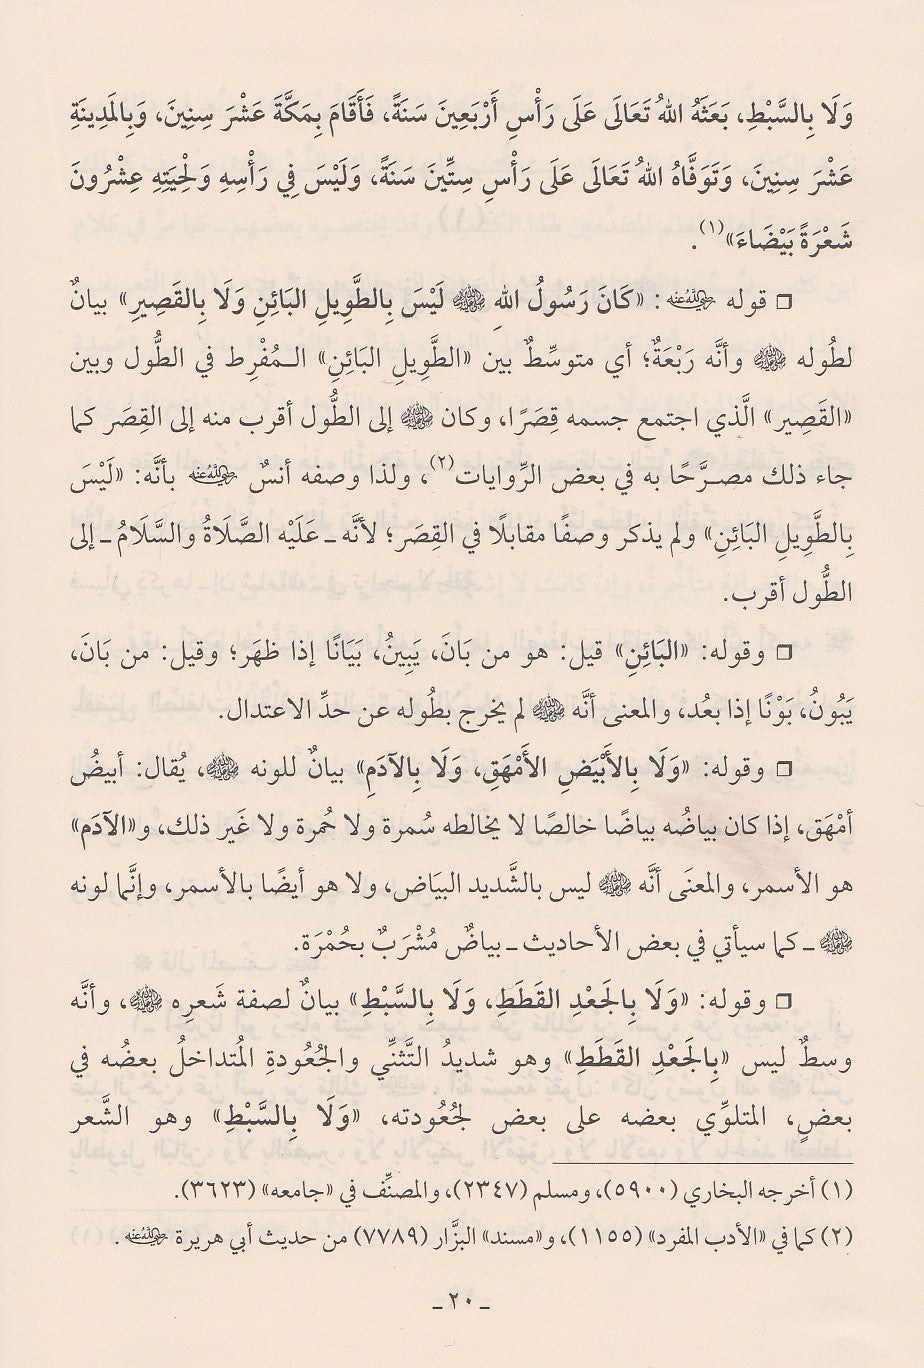 وَلَا بِالسَّبْطِ، بَعَثَهُ اللهُ تَعَالَى عَلَى رَأْسِ أَرْبَعِينَ سَنَةً، فَأَقَامَ بِمَكَّةَ عَشْرَ سِنِينَ، وَبِالمَدِينَةِ
عَشْرَ سِنِينَ، وَتَوَفَّاهُ اللهُ تَعَالَى عَلَى رَأْسِ سِتِّينَ سَنَةً، وَلَيْسَ فِي رَأْسِهِ وَلِحْيَتِهِ عِشْرُونَ
شَعْرَةً بَيْضَاءَ»(١).
□ قوله رضي الله عنه: «كَانَ رَسُولُ اللهِ ﷺ لَيْسَ بِالطَّوِيلِ البَائِنِ وَلَا بِالقَصِيرِ» بيانٌ
لطُوله ﷺ وأنَّه رَبْعَةٌ؛ أي متوسِّطٌ بين «الطَّوِيلِ البَائِنِ» المُفْرِط في الطُّول وبين
«القَصِير» الَّذي اجتمع جسمه قِصَرًا، وكان ﷺ إلى الطُّول أقرب منه إلى القِصَر كما
جاء ذلك مصرَّحًا به في بعض الرِّوايات(٢)، ولذا وصفه أنسٌ رضي الله عنه بأنَّه: «لَيْسَ
بِالطَّوِيلِ البَائِنِ» ولم يذكر وصفًا مقابلًا في القِصَر؛ لأنَّه ـ عَلَيْه الصَّلَاةُ والسَّلَامُ ـ إلى
الطُّول أقرب.
□ وقوله: «البَائِنِ» قيل: هو من بَانَ، يَبِينُ، بَيَانًا إذا ظهَر؛ وقيل: من بَانَ،
يَبُونُ، بَوْنًا إذا بعُد، والمعنى أنَّه ﷺ لم يخرج بطُوله عن حدِّ الاعتدال.
□ وقوله: «وَلَا بِالأَبْيَضِ الأَمْهَقِ، وَلَا بِالآدَمِ» بيانٌ للونه ﷺ، يُقال: أبيضُ
أمْهَق، إذا كان بياضُه بياضًا خالصًا لا يخالطه سُمرة ولا حُمرة ولا غَير ذلك، و«الآدَم»
هو الأسمر، والمعنَى أنَّه ﷺ ليس بالشَّديد البيَاض، ولا هو أيضًا بالأسمر، وإنَّما لونه
ﷺ ـ كما سيأتي في بعض الأحاديث ـ بياضٌ مُشْرَبٌ بحُمْرَة.
□ وقوله: «وَلَا بِالجَعْدِ القَطَطِ، وَلَا بِالسَّبْطِ» بيانٌ لصفة شَعره ﷺ، وأنَّه
وسطٌ ليس «بِالجَعْدِ القَطَطِ» وهو شديدُ التَّثنِّي والجُعُودةِ المُتداخلُ بعضُه في
بعضٍ، المتلوِّي بعضه على بعض لجُعُودته، «وَلَا بِالسَّبْطِ» وهو الشَّعر
(١) أخرجه البخاري (٥٩٠٠)، ومسلم (٢٣٤٧)، والمصنِّف في «جامعه» (٣٦٢٣).
(٢) كما في «الأدب المفرد» (١١٥٥)، و«مسند» البزَّار (٧٧٨٩) من حديث أبي هريرة رضي الله عنه.
ـ ٢٠ ـ